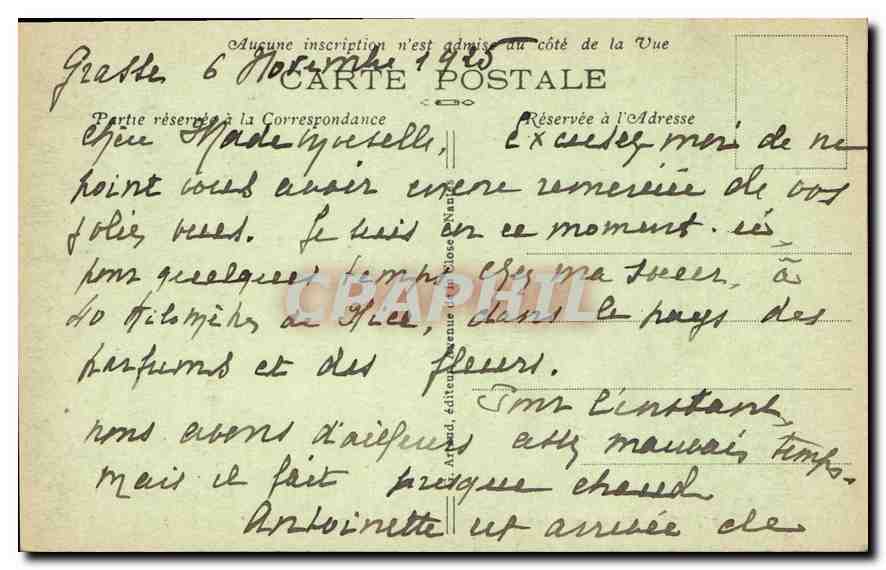 Aucune inscription n'est admise du côté de la Vue
Grasse 6 Novembre 1925
CARTE POSTALE
Partie réservée à la Correspondance
Réservée à l'Adresse
Chère Mademoiselle, Excusez moi de ne
point vous avoir encore remerciée de vos
jolies vues. Je suis en ce moment ici,
pour quelques temps chez ma soeur, à
40 kilomètres de Nice, dans le pays des
parfums et des fleurs.
Pour l'instant,
nous avons d'ailleurs assez mauvais temps.
mais il fait presque chaud
Antoinette est arrivée de
Artaud, éditeur, Avenue d'un Close Nantes
CPAPHIL